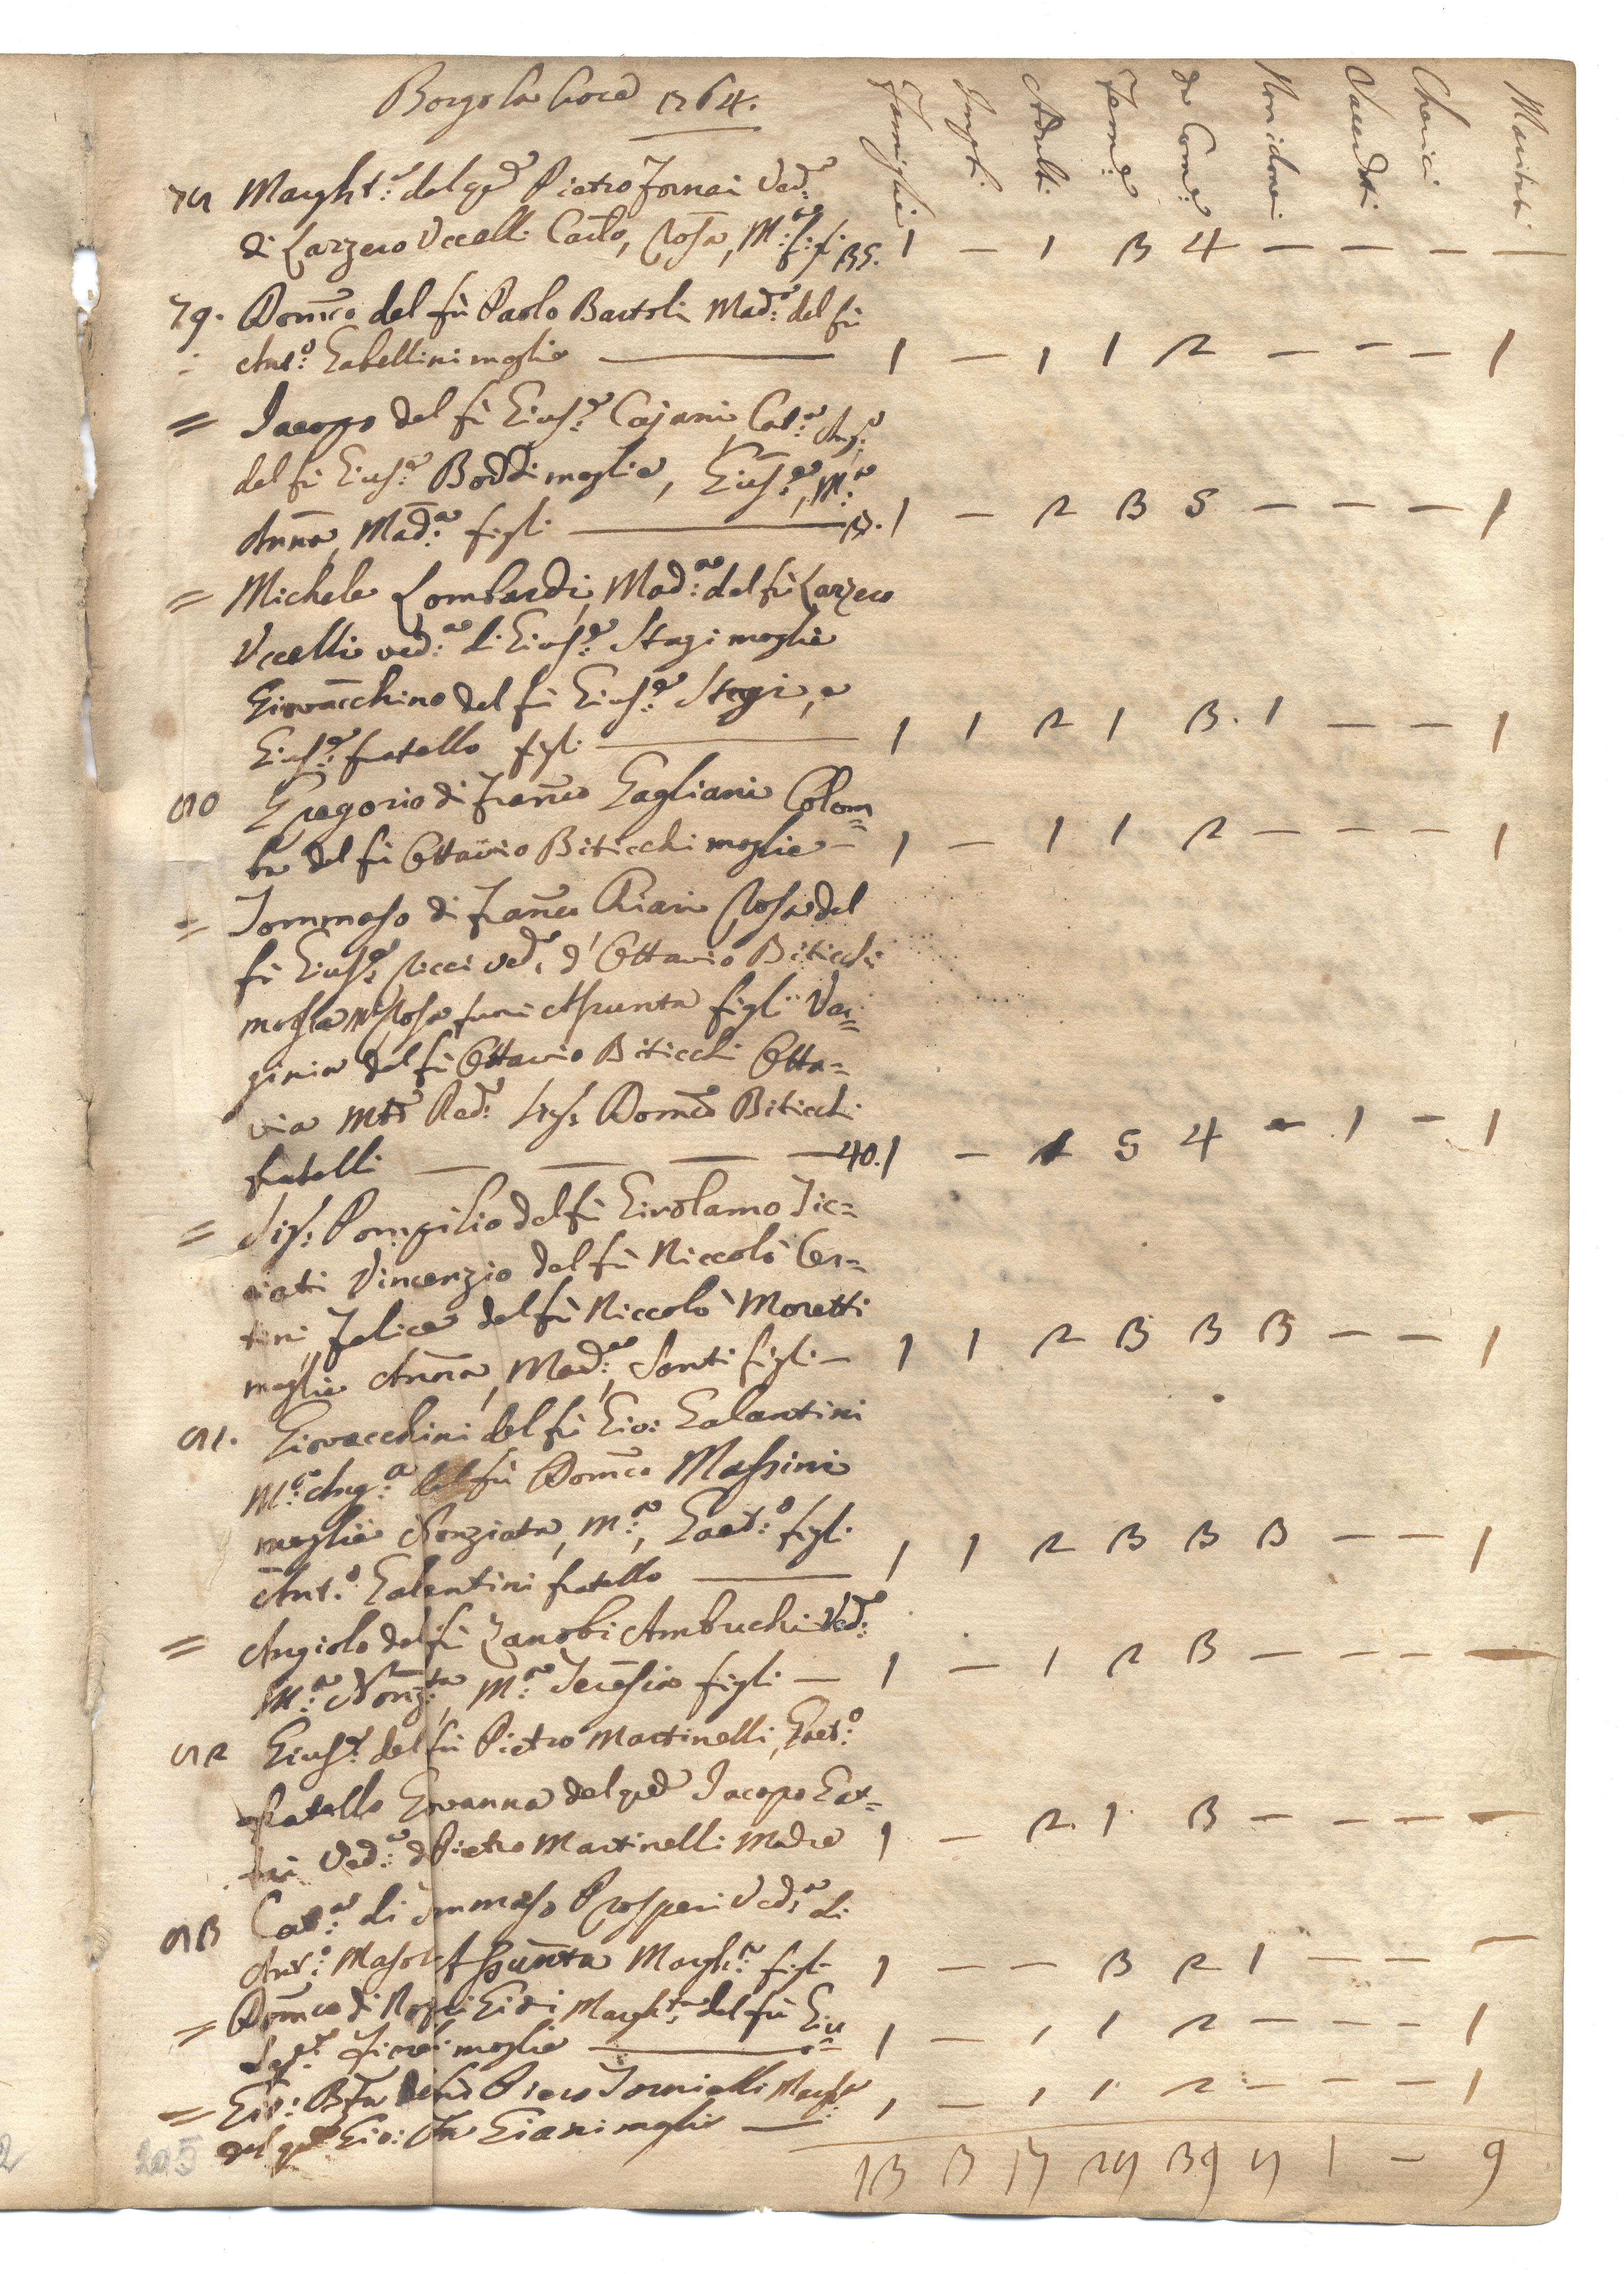 Borgo la Croce 1764.
Famiglie Impti. Adulti Femè da Comè Non idonei Sacerdti Cherici Mariti
78 Marghtª: del qd Pietro Fornai Vedª:
di Lazzero Uccelli Carlo, Rosa, Mª: figli 35. 1 — 1 3 4 — — — —
79. Domco del fù Paolo Bartoli Madª: del fù
Antº: Gabellini moglie — 1 — 1 1 2 — — — 1
= Jacopo del fù Giusê: Cajani Catª: Angª:
del fù Giusê: Boddi moglie, Giusê:, Mª:
Anna, Madª: figli — 1 — 2 3 5 — — — 1
= Michele Lombardi, Madª: del fù Lazzero
Uccelli vedª: di Giusê: Stagi moglie
Giovacchino del fù Giusê: Stagi, e
Giusê: fratello figli — 1 1 2 1 3. 1 — — 1
80 Gregorio di Franco Gagliani Colom=
ba del fù Ottavio Biticchi moglie — 1 — 1 1 2 — — — 1
= Tommaso di Franco Chiari Rosa del
fù Giusê: Ricci vedª: d'Ottavio Biticchi
moglie Mª Rosa Assunta figli Vir=
ginia del fù Ottavio Biticchi Otta=
via Domco Biticchi
fratelli — — — — 40. 1 — 1 5 4 — 1 — 1
= Sigr: Pompilio del fù Girolamo Tic=
ciati Vincenzio del fù Niccolò Cer=
tini, Felice del fù Niccolò Moretti
moglie Anna, Madª:, Santi figli — 1 1 2 3 3 3 — — 1
81. Giovacchini del fù Gio: Galantini
Mª: Angª: del fù Domco Massini
moglie Nonziata, Mª:, Gaetº: figli
Antº: Galantini fratello — 1 1 2 3 3 3 — — 1
= Angiolo del fù Zanobi Ambuchi Ved:
Mª: Nonzta, Mª: Teresia figli — 1 — 1 2 3 — — — —
82 Giusê: del fù Pietro Martinelli, Gaetº:
fratello Giovanna del qd Jacopo Gat=
ti Vedª: di Pietro Martinelli Madre 1 — 2. 1. 3 — — — —
83 Catª: di Tommaso Prosperi Vedª: di
Antº: Assunta Marghª: figli 1 — — 3 2 1 — — —
= Domco di Marghtª: del fù Giu
moglie — 1 — 1 1 2 — — — 1
= Gio: Bta del fù Piero Tornielli Marghª
del qd Gio: Bta Giani moglie — 1 — 1 1 2 — — — 1
13 3 17 28 39 8 1 — 9
205